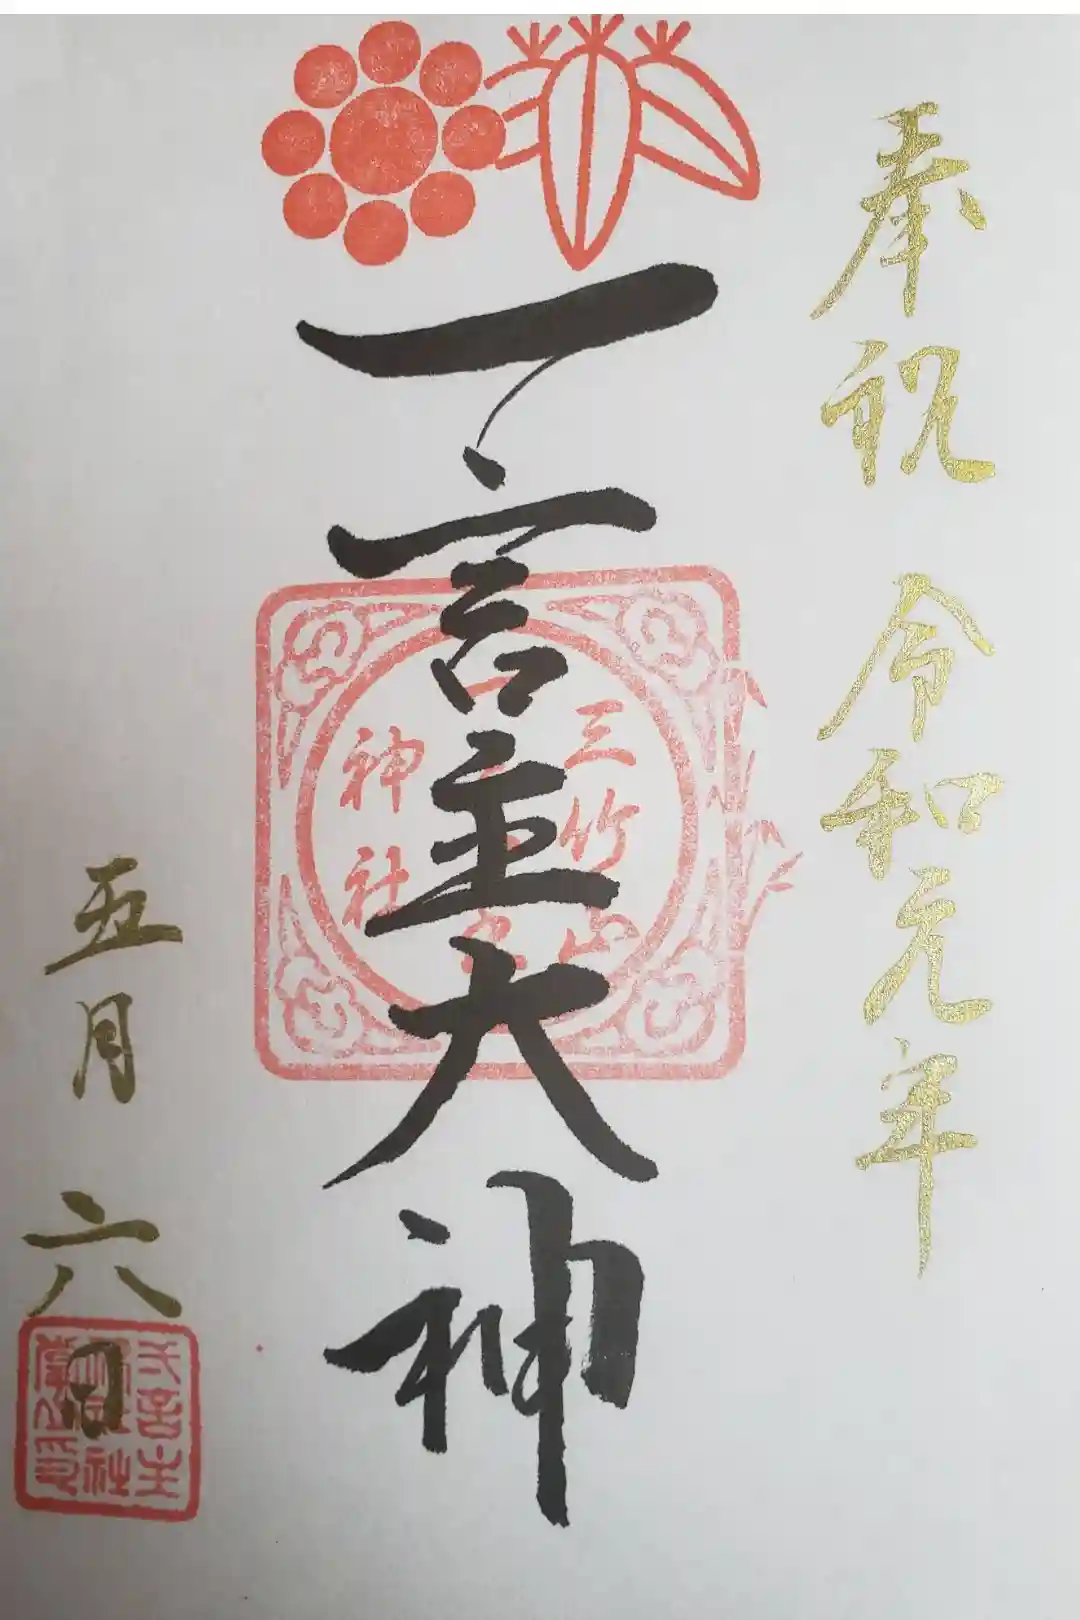 奉祝 令和元年
一言主大神
三竹山
神社
五月六日